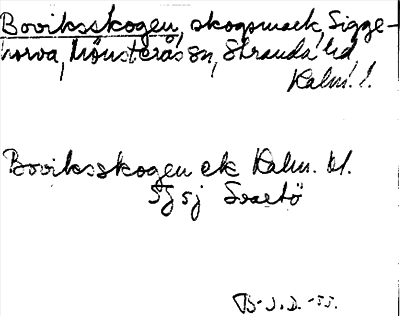 Boviksskogen, skogsmark, Sigge-
horva, Mönsterås sn, Stranda hd
Kalm. l.
Boviksskogen ek Kalm. bl.
5g 5j Svartö
B-J.D. -55.